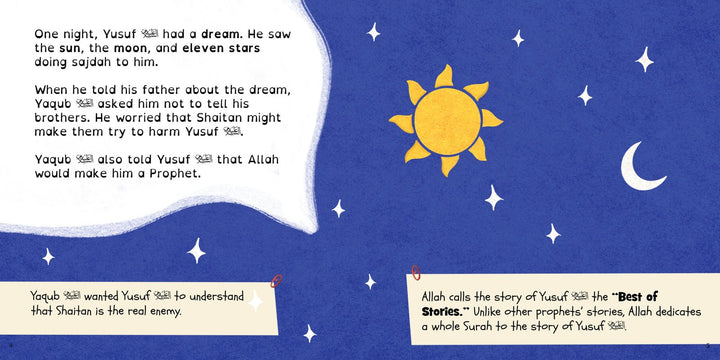 One night, Yusuf ﷺ had a dream. He saw
the sun, the moon, and eleven stars
doing sajdah to him.
When he told his father about the dream,
Yaqub ﷺ asked him not to tell his
brothers. He worried that Shaitan might
make them try to harm Yusuf ﷺ.
Yaqub ﷺ also told Yusuf ﷺ that Allah
would make him a Prophet.
Yaqub ﷺ wanted Yusuf ﷺ to understand
that Shaitan is the real enemy.
Allah calls the story of Yusuf ﷺ the "Best of
Stories." Unlike other prophets' stories, Allah dedicates
a whole Surah to the story of Yusuf ﷺ.